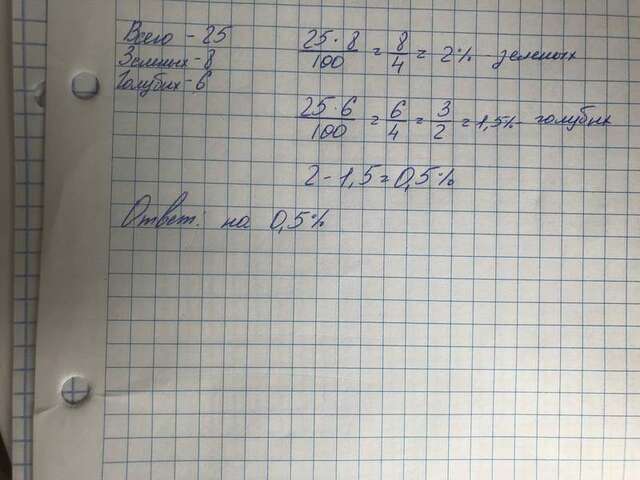 Всего - 25
Зелёных - 8
Голубых - 6
25 · 8 / 100 = 8 / 4 = 2% зеленых
25 · 6 / 100 = 6 / 4 = 3 / 2 = 1,5% голубых
2 - 1,5 = 0,5%
Ответ: на 0,5%